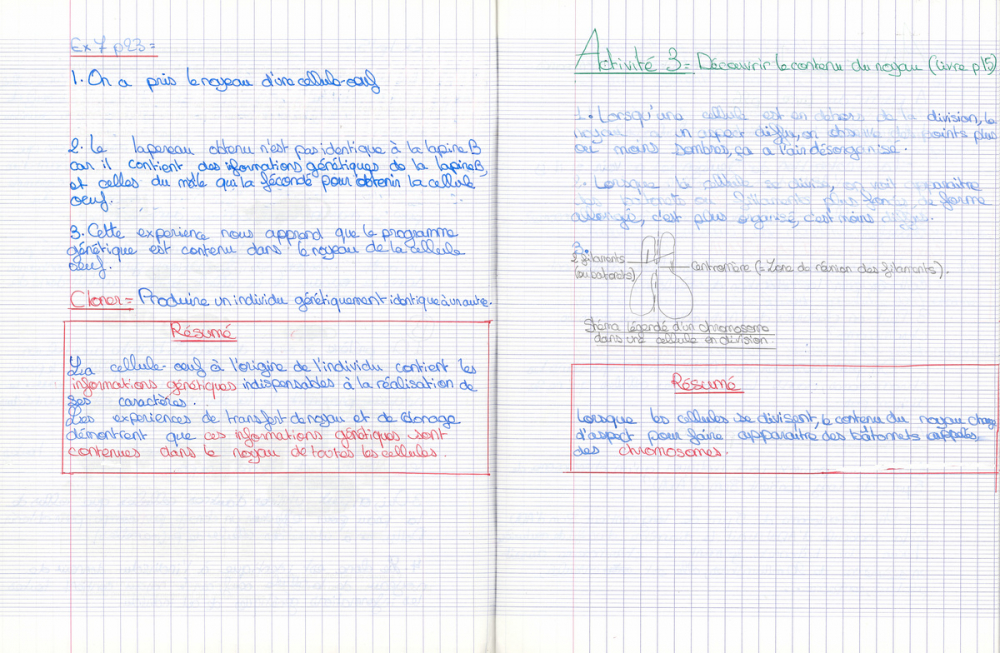 Ex 7 p23 =
1. On a pris le noyeau d'une cellule-oeuf
2. Le lapereau obtenu n'est pas identique à la lapine B
car il contient des informations génétiques de la lapine B,
et celles du mâle qui la féconde pour obtenir la cellule
oeuf.
3. Cette experience nous apprend que le programme
génétique est contenu dans le noyeau de la cellule
oeuf.
Cloner = Produire un individu génétiquement identique à un autre.
Résumé
La cellule-oeuf à l'origine de l'individu contient les
informations génétiques indispensables à la réalisation de
ses caractères.
Les experiences de transfert de noyau et de clonage
démontrent que ces informations génétiques sont
contenues dans le noyau de toutes les cellules.
Activité 3 = Découvrir le contenu du noyau (Livre p15)
1. Lorsqu'une cellule est en dehors de la division, le
noyau a un aspect diffus, on observe des points plus
ou moins sombres, ça a l'air désorganisé.
2. Lorsque la cellule se divise, on voit apparaître
des batonets ou filaments plus foncés de forme
allongée, c'est plus organisé, c'est moins diffus.
3.
2 filaments
(ou batonets)
centromère (= Zone de réunion des filaments).
Shéma légendé d'un chromosome
dans une cellule en division
Résumé
Lorsque les cellules se divisent, le contenu du noyau change
d'aspect pour faire apparaitre des bâtonnets appelés
des chromosomes.